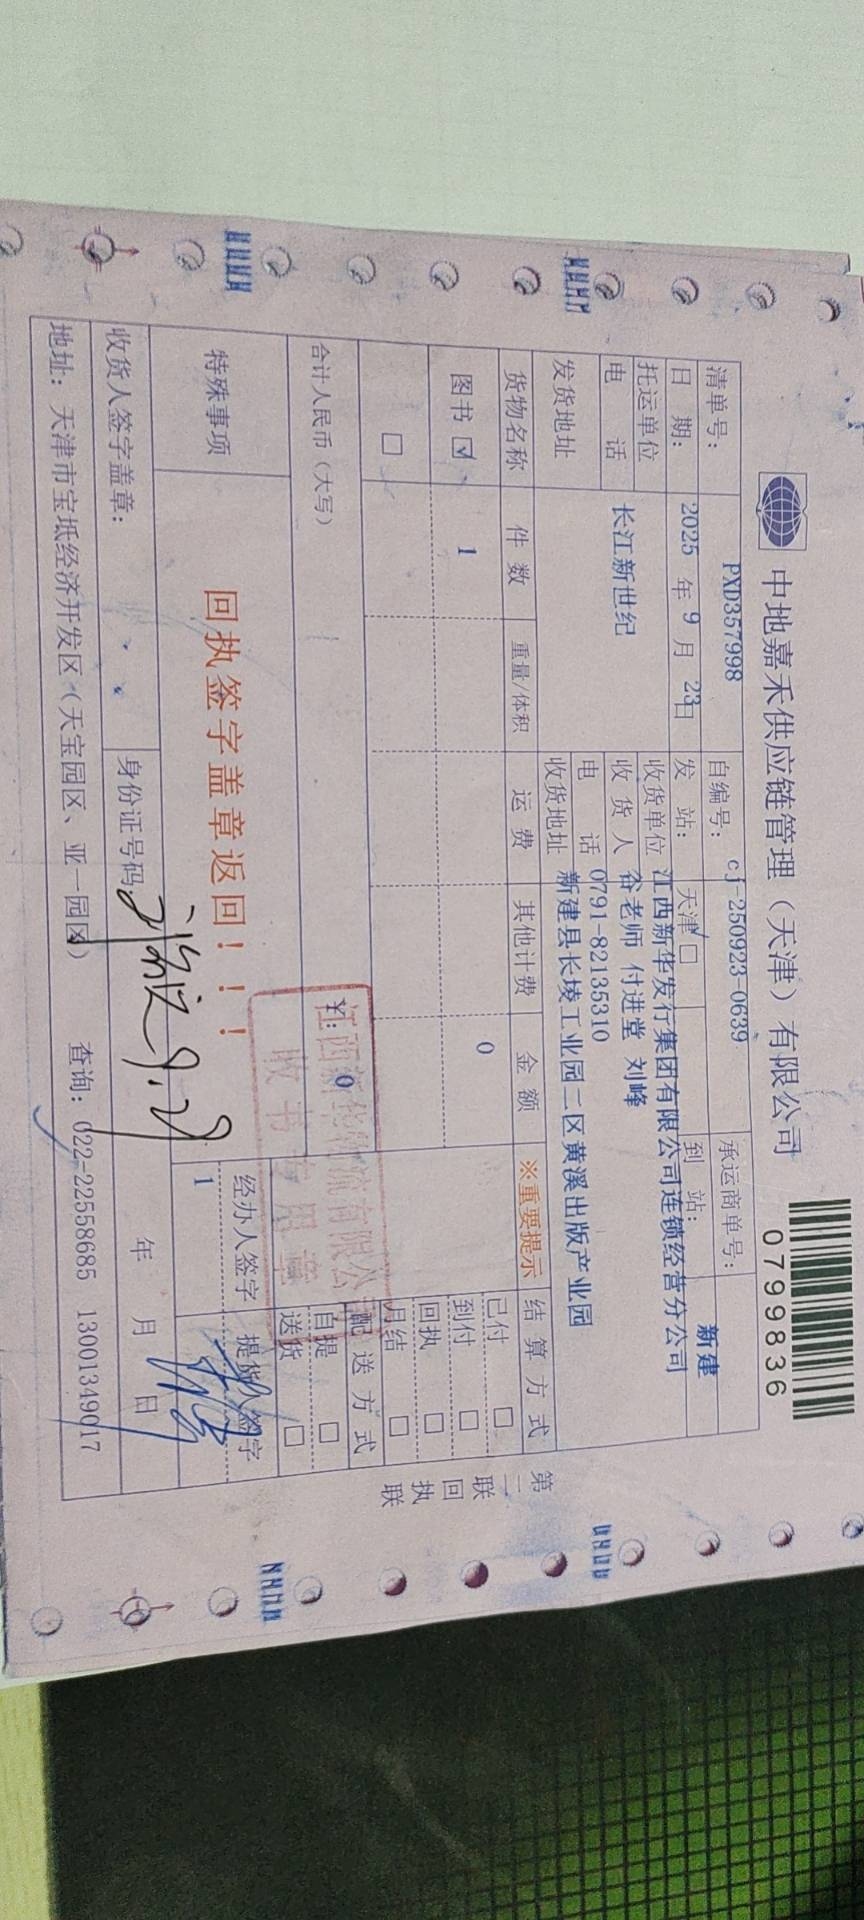 中地嘉禾供应链管理（天津）有限公司
0799836
清单号： PXD357998 自编号： cj-250923-0639 承运商单号：
日 期： 2025 年 9 月 23日 发 站： 天津 □ 到 站： 新建
托运单位 长江新世纪 收货单位 江西新华发行集团有限公司连锁经营分公司
收 货 人 谷老师 付进堂 刘峰
电 话 电 话 0791-82135310
发货地址 收货地址 新建县长堎工业园二区黄溪出版产业园
货物名称 件 数 重量/体积 运 费 其他计费 金 额 ※重要提示 结 算 方 式
图书 ☑ 1 0 已付 □
到付 □
□ 回执 □
月结 □
合计人民币（大写） ¥: 0 配 送 方 式
自提 □
送货 □
江西新华物流有限公
收书专用章
特殊事项 回执签字盖章返回！！！ 经办人签字 提货人签字
1
收货人签字盖章： 身份证号码： 9.28 年 月 日
地址：天津市宝坻经济开发区（天宝园区、亚一园区） 查询：022-22558685 13001349017
第二联 回执联